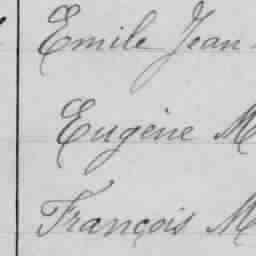 Emile Jean
Eugène M
François M